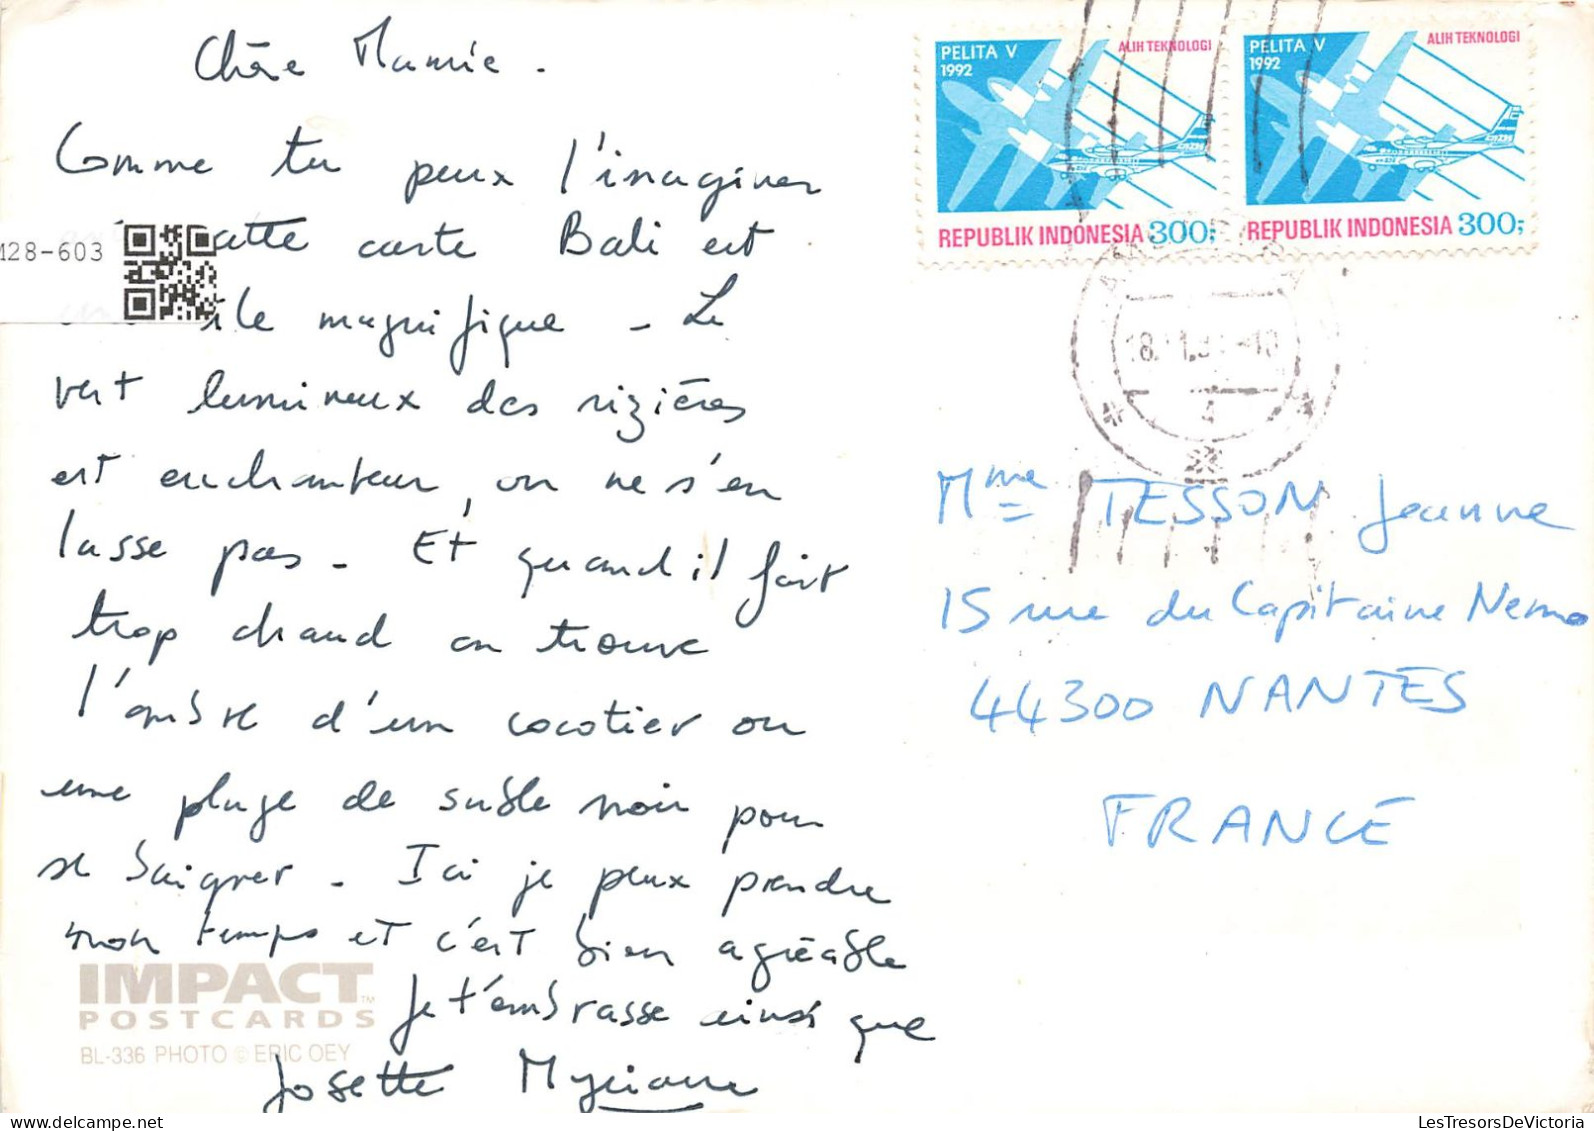 Chère Mamie.
Comme tu peux l'imaginer
cette carte Bali est
île magnifique - Le
vert lumineux des rizières
est enchanteur, on ne s'en
lasse pas - Et quand il fait
trop chaud on trouve
l'ombre d'un cocotier ou
une plage de sable noir pour
se baigner - Ici je peux prendre
mon temps et c'est bien agréable
Je t'embrasse ainsi que
Josette Myriam
M28-603
IMPACT TM
POSTCARDS
BL-336 PHOTO © ERIC OEY
PELITA V
1992
ALIH TEKNOLOGI
REPUBLIK INDONESIA 300;
PELITA V
1992
ALIH TEKNOLOGI
REPUBLIK INDONESIA 300;
4
Mme TESSON Jeanne
15 rue du Capitaine Nemo
44300 NANTES
FRANCE
LesTresorsDeVictoria